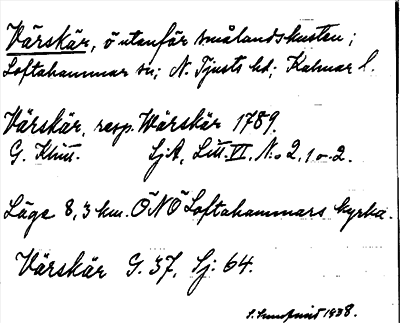 Värskär, ö utanför smålandskusten;
Loftahammar sn; N. Tjusts hd; Kalmar l.
Värskär, resp. Wärskär 1789.
G. Klint. SjA, Litt. VI. N:o 2, 1 o. 2.
Läge 8,3 km. ÖNÖ Loftahammars kyrka.
Värskär G. 37, Sj. 64.
1938.